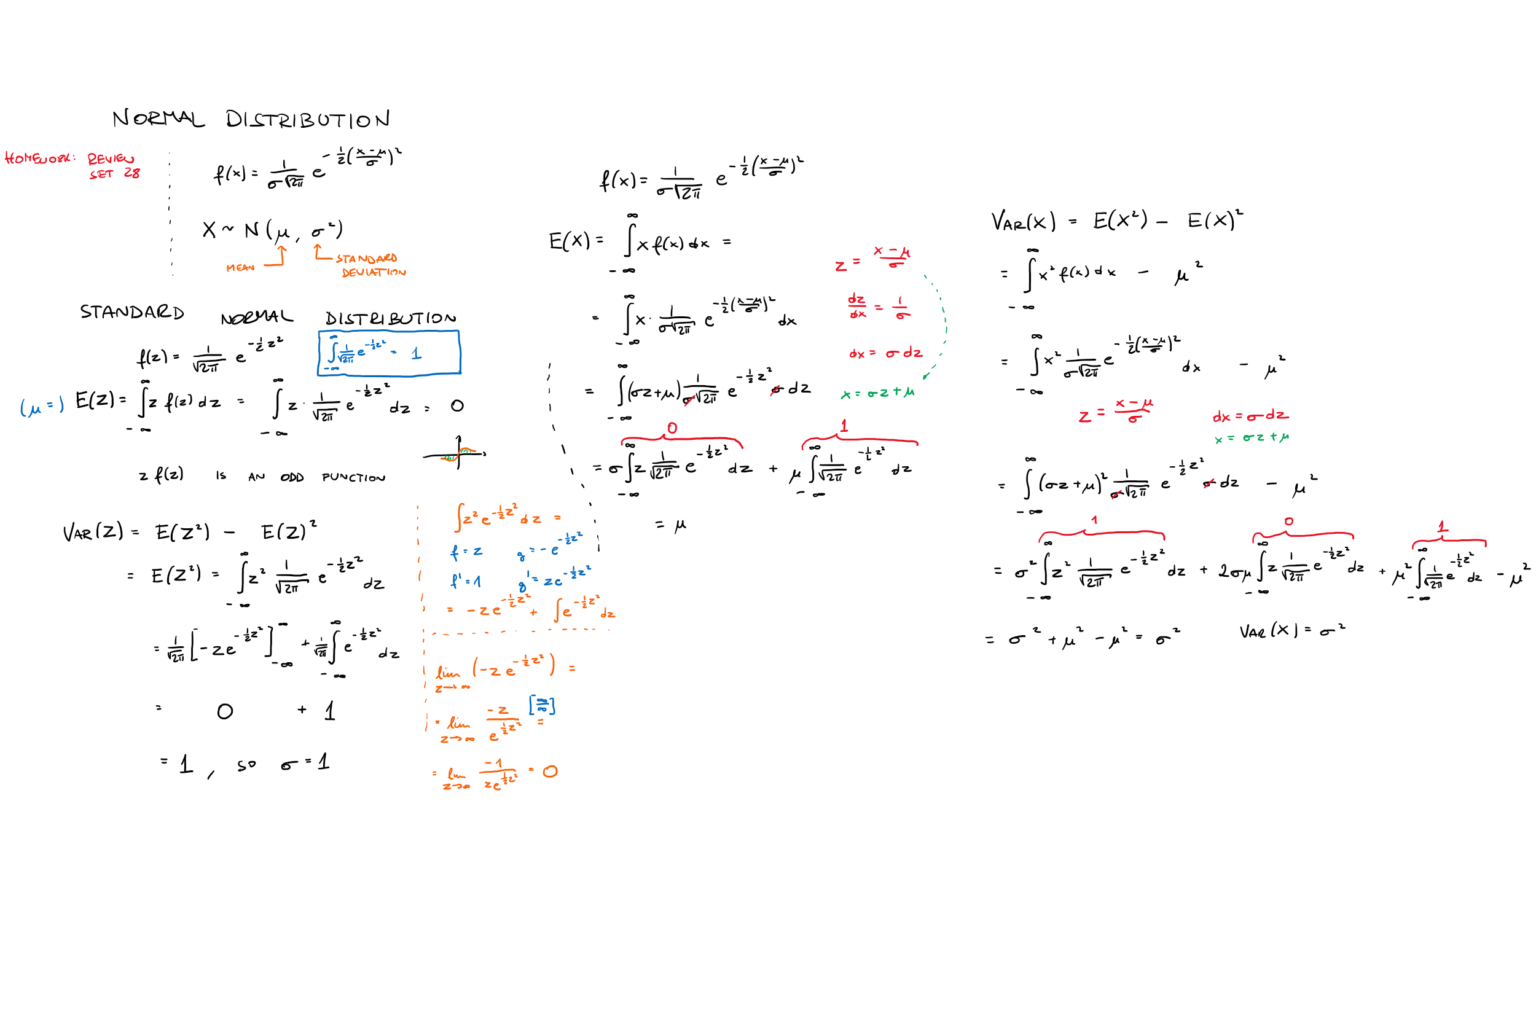 NORMAL DISTRIBUTION
HOMEWORK: REVIEW
SET 28
f(x) = 1/(σ√2π) e^(-½((x-μ)/σ)²)
X ~ N(μ, σ²)
MEAN
STANDARD
DEVIATION
STANDARD NORMAL DISTRIBUTION
f(z) = 1/√2π e^(-½z²)
∫_{-∞}^{∞} 1/√2π e^(-½z²) = 1
(μ=) E(Z) = ∫_{-∞}^{∞} z f(z) dz = ∫_{-∞}^{∞} z · 1/√2π e^(-½z²) dz = 0
z f(z) IS AN ODD FUNCTION
VAR(Z) = E(Z²) - E(Z)²
= E(Z²) = ∫_{-∞}^{∞} z² 1/√2π e^(-½z²) dz
= 1/√2π [-z e^(-½z²)]_{-∞}^{∞} + 1/√2π ∫_{-∞}^{∞} e^(-½z²) dz
= 0 + 1
= 1, so σ = 1
∫z² e^(-½z²) dz =
f = z g = -e^(-½z²)
f' = 1 g' = z e^(-½z²)
= -z e^(-½z²) + ∫e^(-½z²) dz
lim_{z→∞} (-z e^(-½z²)) =
= lim_{z→∞} -z/e^(½z²) [∞/∞] =
= lim_{z→∞} -1/(z e^(½z²)) = 0
f(x) = 1/(σ√2π) e^(-½((x-μ)/σ)²)
E(X) = ∫_{-∞}^{∞} x f(x) dx =
= ∫_{-∞}^{∞} x · 1/(σ√2π) e^(-½((x-μ)/σ)²) dx
= ∫_{-∞}^{∞} (σz+μ) 1/(σ√2π) e^(-½z²) σ dz
0 1
= σ ∫_{-∞}^{∞} z 1/√2π e^(-½z²) dz + μ ∫_{-∞}^{∞} 1/√2π e^(-½z²) dz
= μ
z = (x-μ)/σ
dz/dx = 1/σ
dx = σ dz
x = σz + μ
VAR(X) = E(X²) - E(X)²
= ∫_{-∞}^{∞} x² f(x) dx - μ²
= ∫_{-∞}^{∞} x² 1/(σ√2π) e^(-½((x-μ)/σ)²) dx - μ²
z = (x-μ)/σ dx = σ dz
x = σz + μ
= ∫_{-∞}^{∞} (σz+μ)² 1/(σ√2π) e^(-½z²) σ dz - μ²
1 0 1
= σ² ∫_{-∞}^{∞} z² 1/√2π e^(-½z²) dz + 2σμ ∫_{-∞}^{∞} z 1/√2π e^(-½z²) dz + μ² ∫_{-∞}^{∞} 1/√2π e^(-½z²) dz - μ²
= σ² + μ² - μ² = σ² VAR(X) = σ²